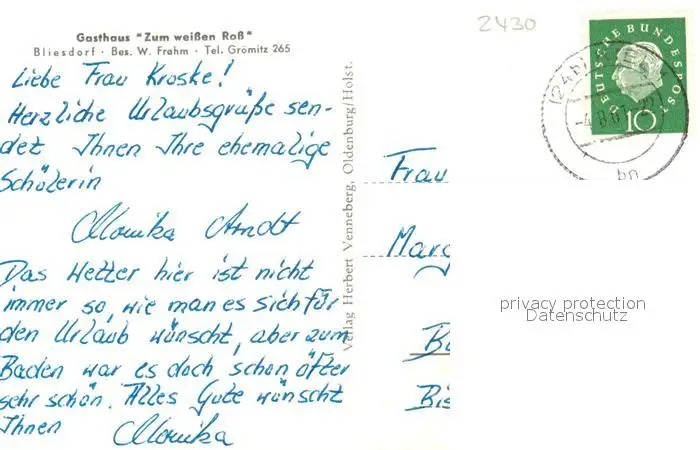 2430
Gasthaus "Zum weißen Roß"
Bliesdorf · Bes. W. Frahm · Tel. Grömitz 265
Liebe Frau Kroske!
Herzliche Urlaubsgrüße sen-
det Ihnen Ihre ehemalige
Schülerin
Monika Arndt
Das Wetter hier ist nicht
immer so, wie man es sich für
den Urlaub wünscht, aber zum
Baden war es doch schon öfter
sehr schön. Alles Gute wünscht
Ihnen Monika
Verlag Herbert Venneberg, Oldenburg/Holst.
DEUTSCHE BUNDESPOST
10
(24b)
Frau
Marg
Bis
privacy protection
Datenschutz